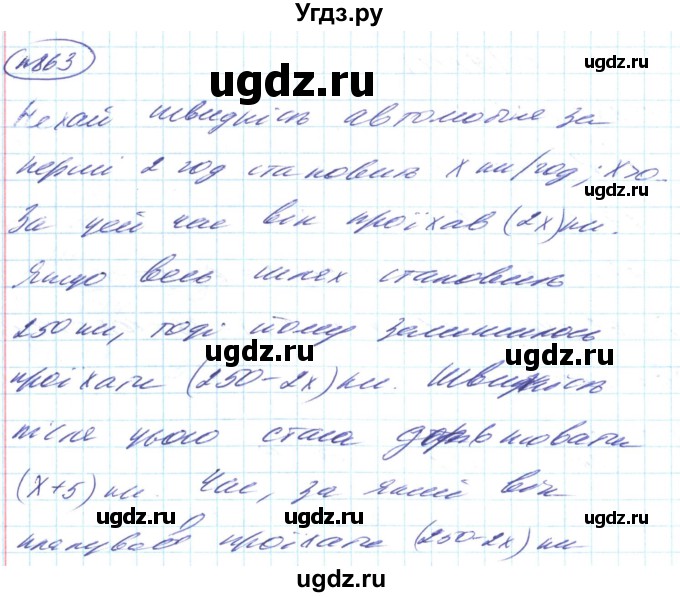 Угдз.ру
№863
ugdz.ru
Нехай швидкість автомобіля за
перші 2 год становить x км/год; x>0.
ugdz.ru
За цей час він проїхав (2x) км.
Якщо весь шлях становить
250 км, тоді йому залишилось
ugdz.ru
проїхати (250-2x) км. Швидкість
після цього стала дорівнювати
(x+5) км. Час, за який він
ugdz.ru ugdz.ru
планував проїхати (250-2x) км
ugdz.ru